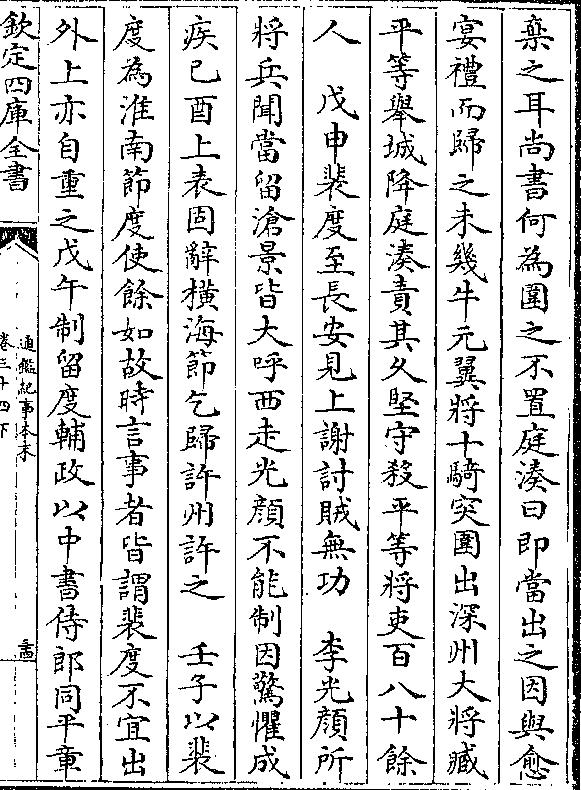 棄之耳尚書何為圍之不置庭湊曰即當出之因與愈
宴禮而歸之未幾牛元翼將十騎突圍出深州大將臧
平等舉城降庭湊責其久堅守殺平等將吏百八十餘
人　戊申裴度至長安見上謝討賊無功　李光顏所
將兵聞當留滄景皆大呼西走光顏不能制因驚懼成
疾己酉上表固辭橫海節乞歸許州許之　壬子以裴
度為淮南節度使餘如故時言事者皆謂裴度不宜出
外上亦自重之戊午制留度輔政以中書侍郎同平章
欽定四庫全書
通鑑紀事本末
卷三十四下